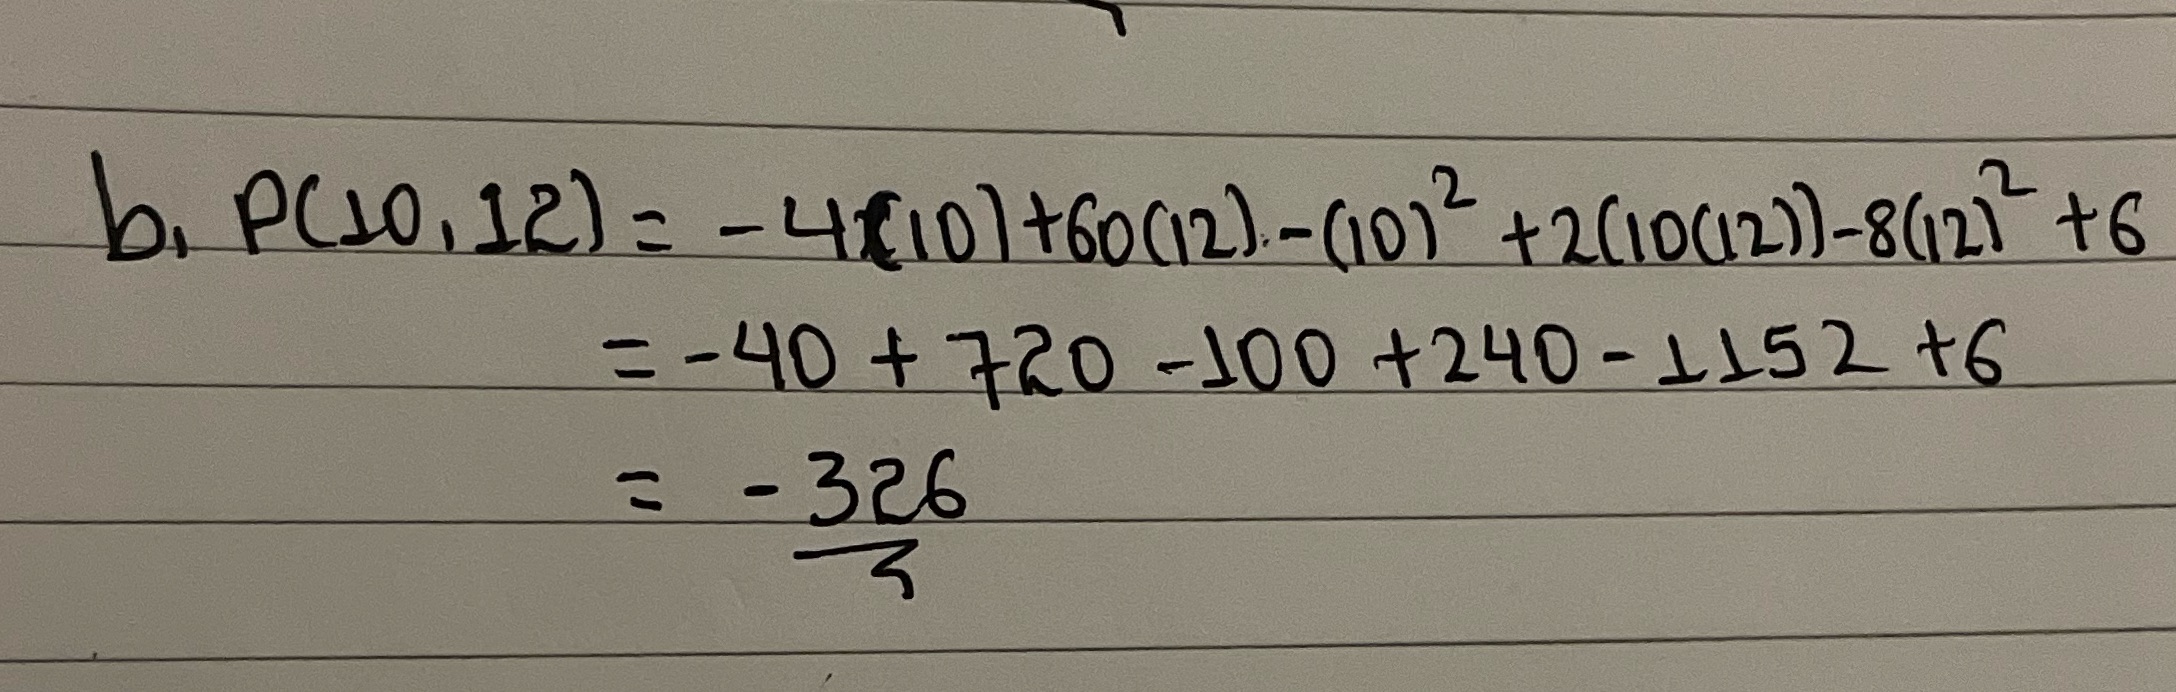 b. P(10,12) = -4(10)+60(12).-(10)² +2(10(12))-8(12)² +6
= -40 + 720 -100 +240 - 1152 +6
= -326